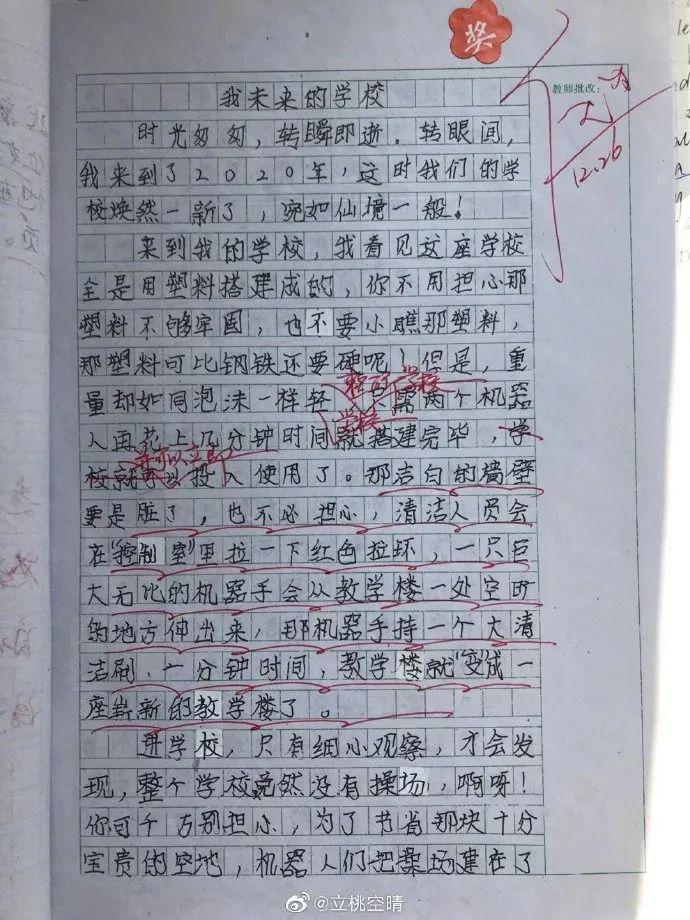 奖
我未来的学校
教师批改：
12.26
时光匆匆，转瞬即逝．转眼间，
我来到了2020年，这时我们的学
校焕然一新了，宛如仙境一般！
来到我的学校，我看见这座学校
全是用塑料搭建成的，你不用担心那
塑料不够牢固，也不要小瞧那塑料，
那塑料可比钢铁还要硬呢！但是，重
量却如同泡沫一样轻
学校
需两个机器
人再花上几分钟时间就搭建完毕，学
校就可以投入使用了。那洁白的墙壁
要是脏了，也不必担心，清洁人员会
在“控制室”里拉一下红色拉环，一只巨
大无比的机器手会从教学楼一处空旷
的地方伸出来，那机器手持一个大清
洁刷．一分钟时间，教学楼就“变”成一
座崭新的教学楼了。
进学校，只有细心观察，才会发
现，整个学校竟然没有操场，啊呀！
你可千万别担心，为了节省那块十分
宝贵的空地，机器人们把操场建在了
@立桃空晴